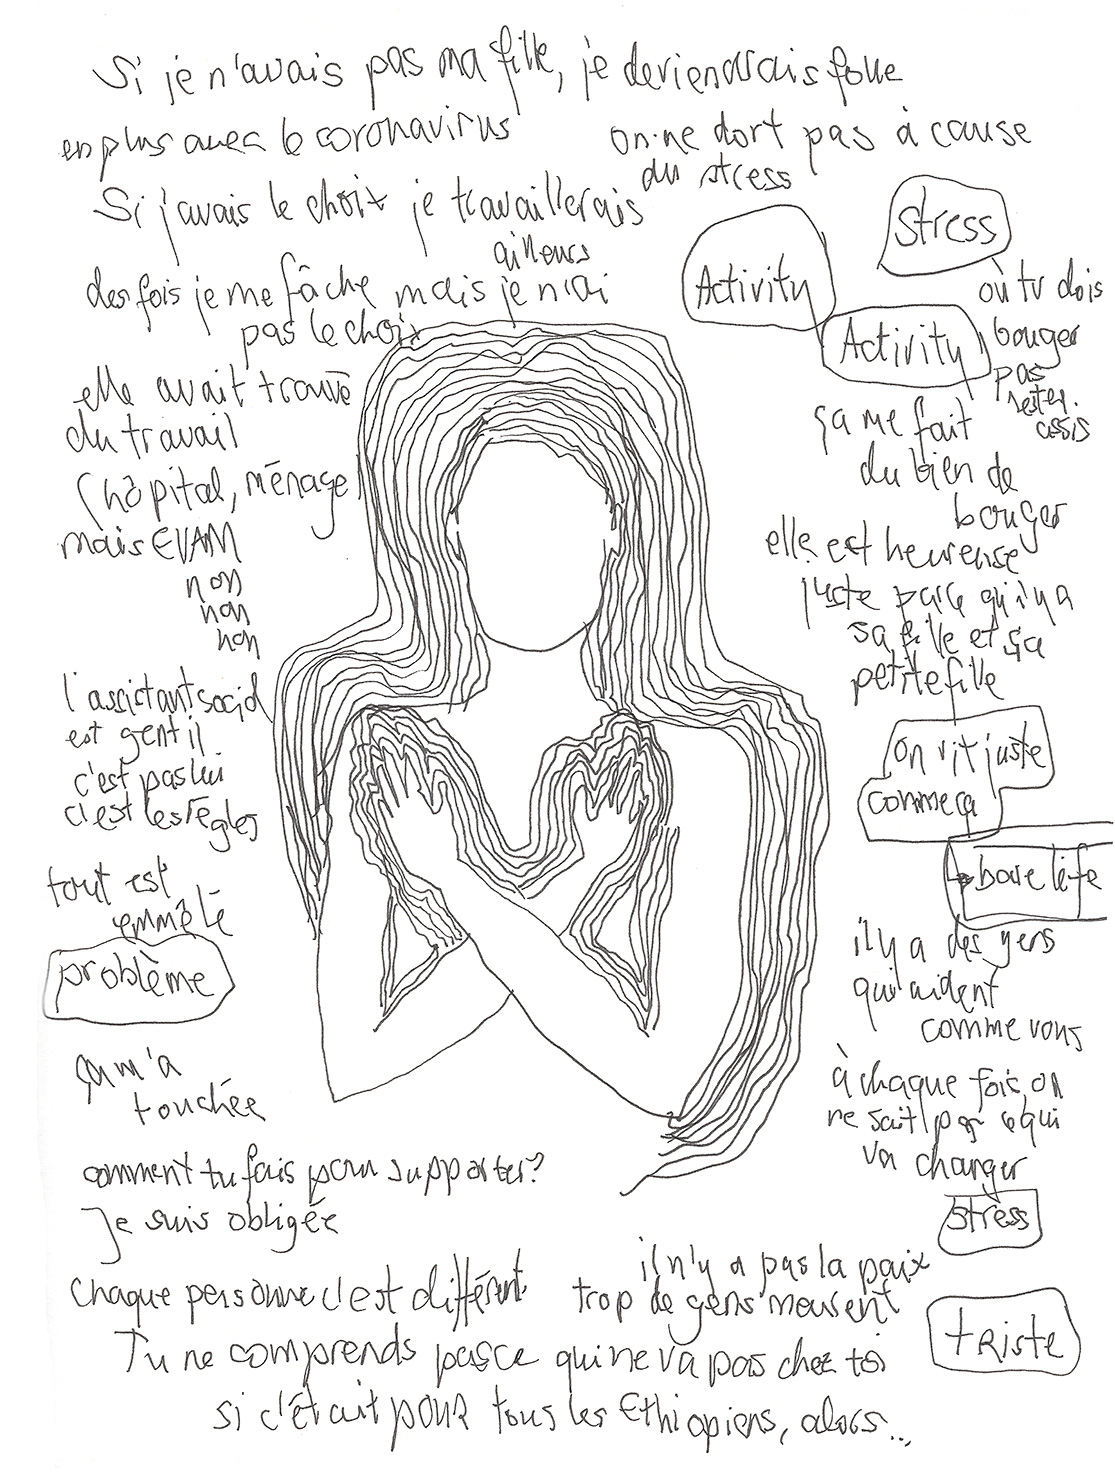 Si je n'avais pas ma fille, je deviendrais folle
en plus avec le coronavirus
on ne dort pas à cause
du stress
Si j'avais le choix je travaillerais
ailleurs
des fois je me fâche mais je n'ai
pas le choix
Stress
Activity
où tu dois
bouger
pas
rester
assis
Activity
ça me fait
du bien de
bouger
elle avait trouvé
du travail
(hôpital, ménage)
mais EVAM
non
non
non
elle est heureuse
juste parce qu'il y a
sa fille et sa
petite fille
l'assistant social
est gentil
c'est pas lui
c'est les règles
on vit juste
comme ça
bare life
tout est
emmêlé
problème
il y a des gens
qui aident
comme vous
ça m'a
touchée
à chaque fois, on
ne sait pas ce qui
va changer
stress
comment tu fais pour supporter?
Je suis obligée
il n'y a pas la paix
trop de gens meurent
triste
chaque personne c'est différent
Tu ne comprends pas ce qui ne va pas chez toi
si c'était pour tous les Ethiopiens, alors...